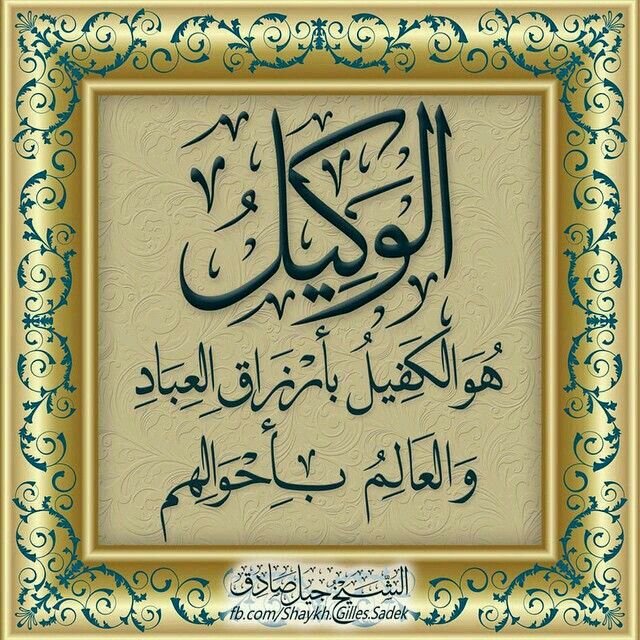 الوَكِيلُ
هُوَ الكَفِيلُ بأَرْزَاقِ العِبَادِ
وَالعَالِمُ بِأَحْوَالِهِم
الشيخ جيل صادق
fb.com/Shaykh.Gilles.Sadek